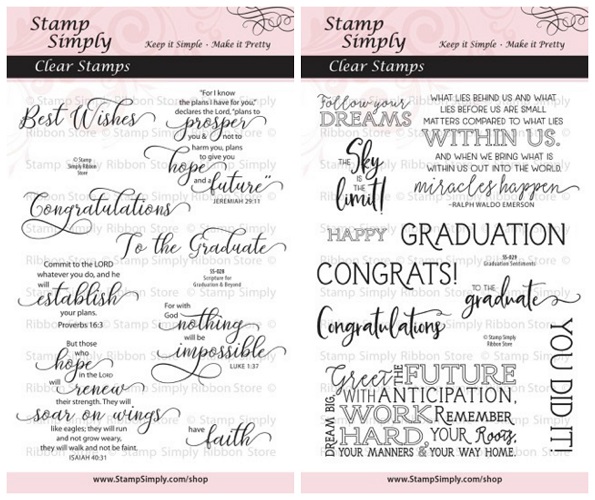 Stamp
Simply
Keep it Simple - Make it Pretty
Clear Stamps
© Stamp Simply Ribbon Store ©
Best Wishes
"For I know
the plans I have for you,"
declares the Lord, "plans to
prosper
you & not to
harm you, plans
to give you
hope
and a
future"
JEREMIAH 29:11
© Stamp
Simply
Ribbon
Store
Congratulations
To the Graduate
Commit to the LORD
whatever you do, and he
will
establish
your plans.
Proverbs 16:3
SS-028
Scripture for
Graduation & Beyond
For with
God
nothing
will be
impossible
LUKE 1:37
But those
who
hope
in the LORD
will
renew
their strength. They will
soar on wings
like eagles; they will run
and not grow weary,
they will walk and not be faint.
ISAIAH 40:31
have
faith
www.StampSimply.com/shop
Stamp
Simply
Keep it Simple - Make it Pretty
Clear Stamps
Follow your
DREAMS
WHAT LIES BEHIND US AND WHAT
LIES BEFORE US ARE SMALL
MATTERS COMPARED TO WHAT LIES
WITHIN US.
AND WHEN WE BRING WHAT IS
WITHIN US OUT INTO THE WORLD,
miracles happen
~RALPH WALDO EMERSON
THE
Sky
IS
THE
limit!
HAPPY
GRADUATION
CONGRATS!
SS-029
Graduation Sentiments
TO THE
graduate
Congratulations
© Stamp Simply
Ribbon Store
YOU DID IT!
Greet
THE
FUTURE
WITH ANTICIPATION,
DREAM BIG,
WORK
HARD,
REMEMBER
YOUR Roots,
YOUR MANNERS & YOUR WAY HOME.
www.StampSimply.com/shop